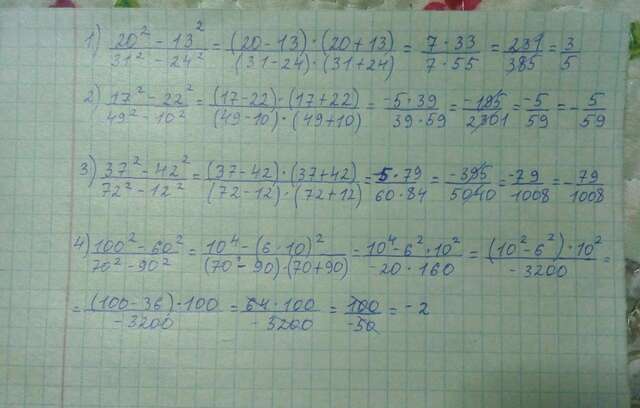 1) (20² - 13²)/(31² - 24²) = ((20-13)·(20+13))/((31-24)·(31+24)) = (7·33)/(7·55) = 231/385 = 3/5
2) (17² - 22²)/(49² - 10²) = ((17-22)·(17+22))/((49-10)·(49+10)) = (-5·39)/(39·59) = -195/2301 = -5/59 = -5/59
3) (37² - 42²)/(72² - 12²) = ((37-42)·(37+42))/((72-12)·(72+12)) = (-5·79)/(60·84) = -395/5040 = -79/1008 = -79/1008
4) (100² - 60²)/(70² - 90²) = (10⁴ - (6·10)²)/((70-90)·(70+90)) = (10⁴ - 6²·10²)/(-20·160) = ((10² - 6²)·10²)/(-3200) =
= ((100-36)·100)/(-3200) = (64·100)/(-3200) = 100/(-50) = -2